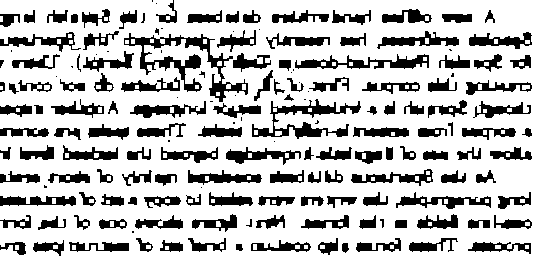 A new offline handwritten database for the Spanish lang
Spanish sentences, has recently been developed: the Spartacus
for Spanish Restricted-domain Task of Cursive Script). There w
creating this corpus. First of all, most databases do not contain
though Spanish is a widespread major language. Another impor
a corpus from semantic-restricted tasks. These tasks are comm
allow the use of linguistic knowledge beyond the lexicon level in
As the Spartacus database consisted mainly of short sente
long paragraphs, the writers were asked to copy a set of sentences
one-line fields in the forms. Next figure shows one of the form
process. These forms also contain a brief set of instructions give